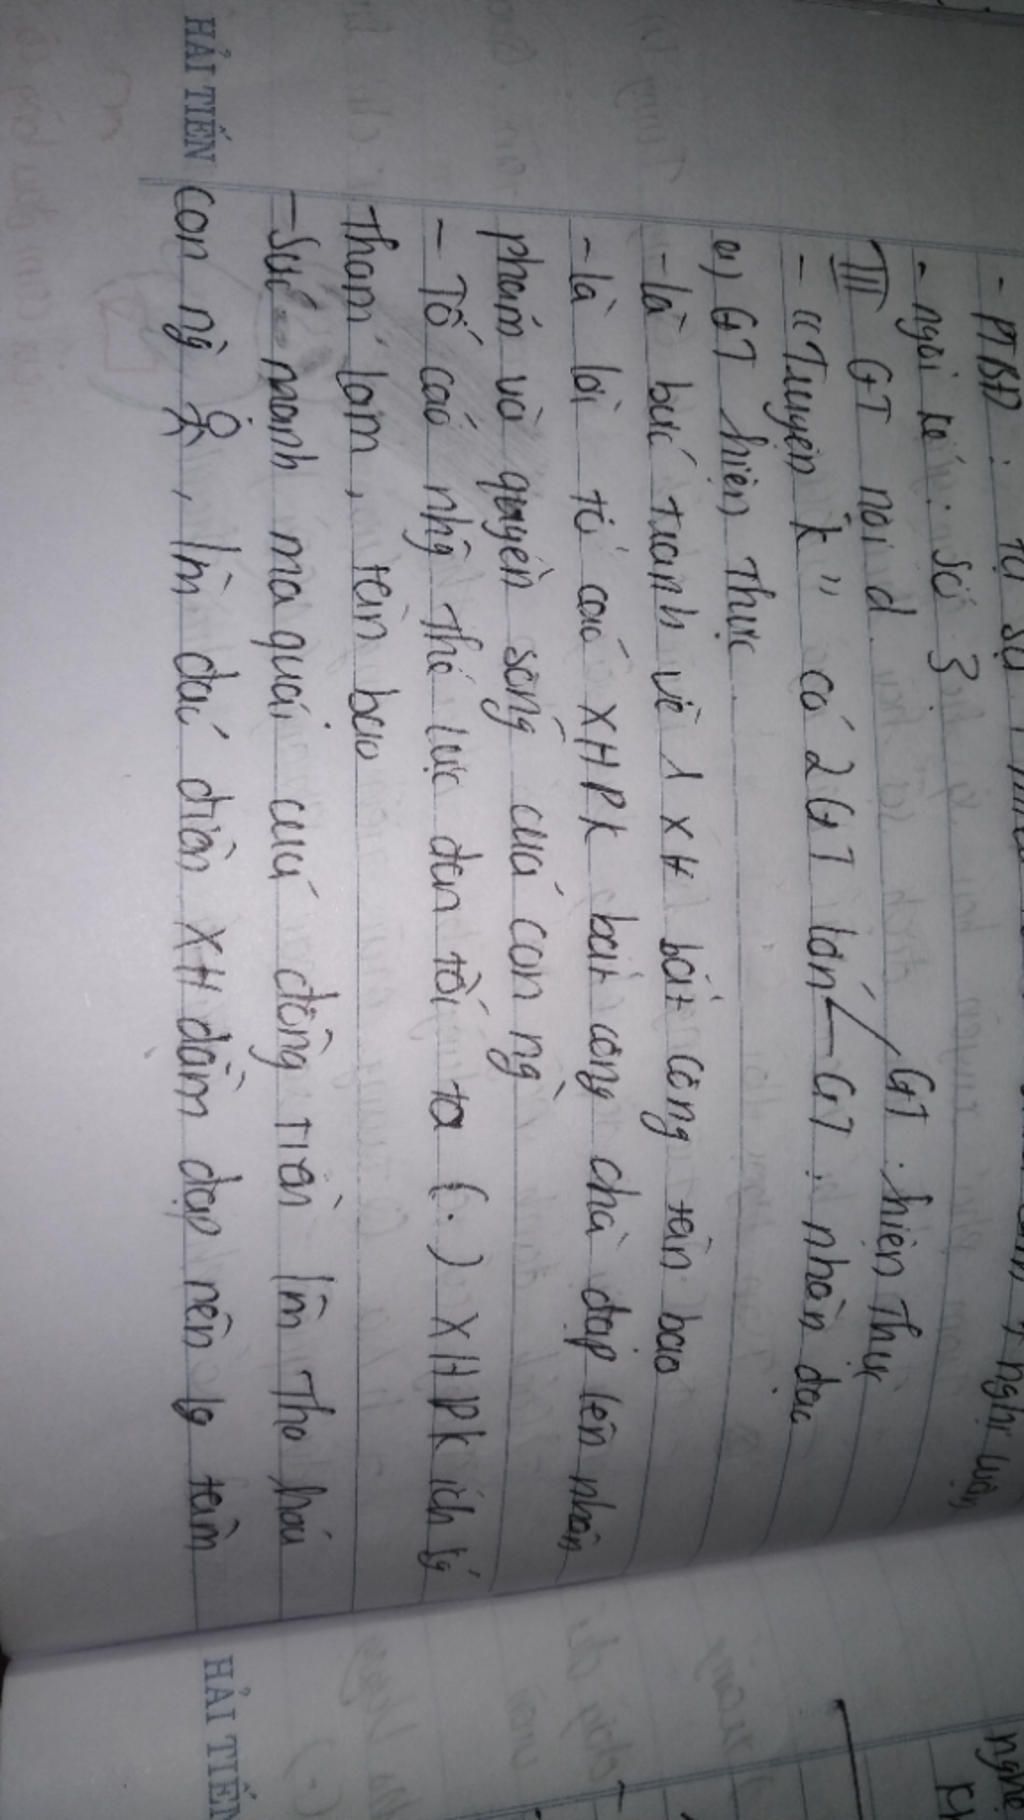 - PTBĐ : tự sự
nghị luận
- ngôi kể : số 3
III GT nội d
GT : hiện thực
- "Truyện k" có 2 GT lớn
GT : nhân đạo
a) GT hiện thực
- là bức tranh về 1 XH bất công tàn bạo
- là lời tố cáo XHPK bất công chà đạp lên nhân
phẩm và quyền sống của con ng
- Tố cáo nhg thế lực đen tối ta (.) XHPK ích kỷ
tham lam, tàn bạo
- Sức mạnh ma quái của đồng tiền làm tha hóa
con ng, làm đảo điên XH dẫm đạp nên lg tâm
HẢI TIẾN
HẢI TIẾN